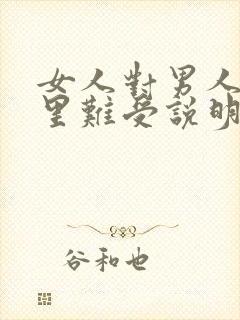 女人對男人
里難受說明
谷和也